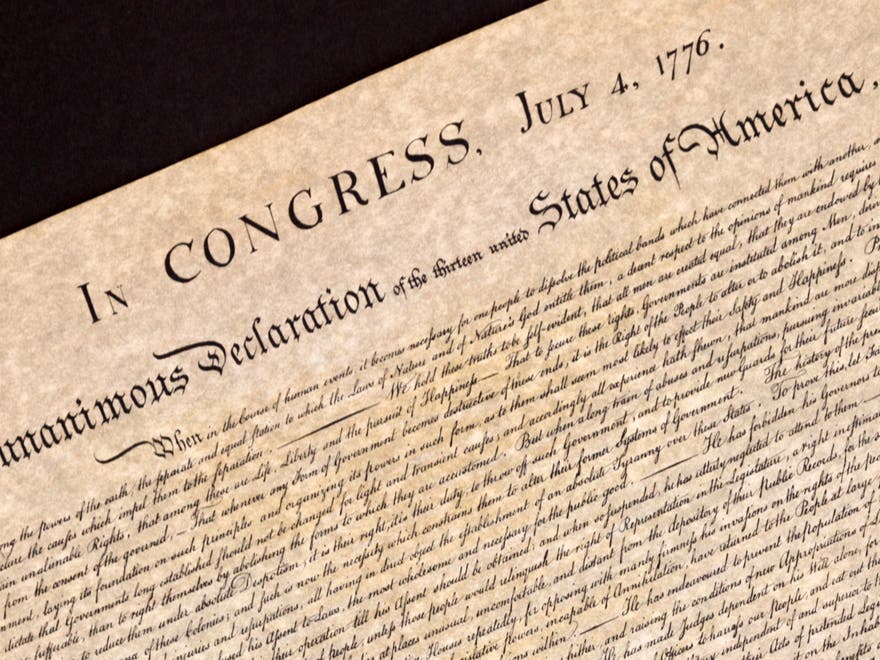 IN CONGRESS, JULY 4, 1776.
unanimous Declaration of the thirteen united States of America,
When in the Course of human events, it becomes necessary for one people to dissolve the political bands which have connected them with another,
the powers of the earth, the separate and equal station to which the Laws of Nature and of Nature's God entitle them, a decent respect to the opinions of mankind requires
the causes which impel them to the separation. We hold these truths to be self-evident, that all men are created equal, that they are endowed by
unalienable Rights, that among these are Life, Liberty and the pursuit of Happiness.— That to secure these rights, Governments are instituted among Men,
from the consent of the governed, — That whenever any Form of Government becomes destructive of these ends, it is the Right of the People to alter or to abolish it, and to
ment, laying its foundation on such principles and organizing its powers in such form, as to them shall seem most likely to effect their Safety and Happiness.
dictate that Governments long established should not be changed for light and transient causes; and accordingly all experience hath shewn, that mankind are more
sufferable, than to right themselves by abolishing the forms to which they are accustomed. But when a long train of abuses and usurpations, pursuing
to reduce them under absolute Despotism, it is their right, it is their duty, to throw off such Government, and to provide new Guards for their future
of these Colonies; and such is now the necessity which constrains them to alter their former Systems of Government. The history of the
injuries and usurpations, all having in direct object the establishment of an absolute Tyranny over these States. To prove this, let
his Assent to Laws, the most wholesome and necessary for the public good. He has forbidden his Governors to
their operation till his Assent should be obtained; and when so suspended, he has utterly neglected to attend to them.
of people, unless those people would relinquish the right of Representation in the Legislature, a right
at places unusual, uncomfortable, and distant from the depository of their public Records, for the
Houses repeatedly, for opposing with manly firmness his invasions on the rights of the
powers, incapable of Annihilation, have returned to the People at large
within. He has endeavoured to prevent the population of
hither, and raising the conditions of new Appropriations of
He has made Judges dependent on his Will alone,
Officers to harrass our people, and eat out
independent of and superior to
Acts of pretended
on the